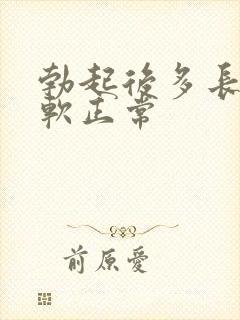 勃起後多長
軟正常
前原愛